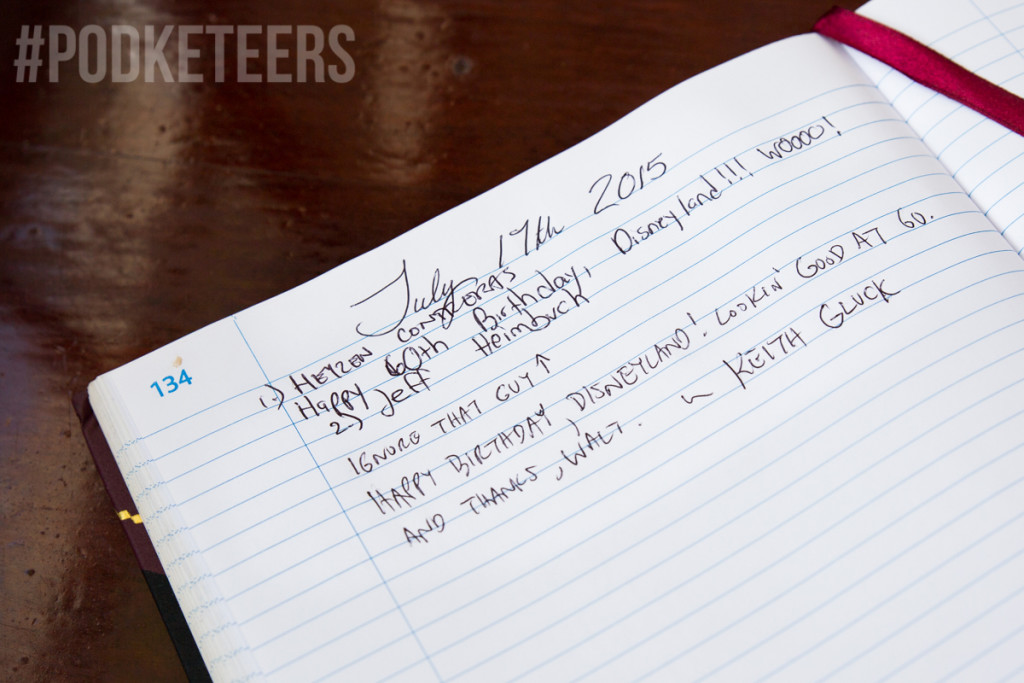 #PODKETEERS
134
July 17th 2015
1.) HEYZEN CONTRERAS
Happy 60th Birthday, Disneyland!!! WOOOO!
2.) Jeff Heimbuch
IGNORE THAT GUY ↑
HAPPY BIRTHDAY, DISNEYLAND! LOOKIN' GOOD AT 60.
AND THANKS, WALT. ~ KEITH GLUCK